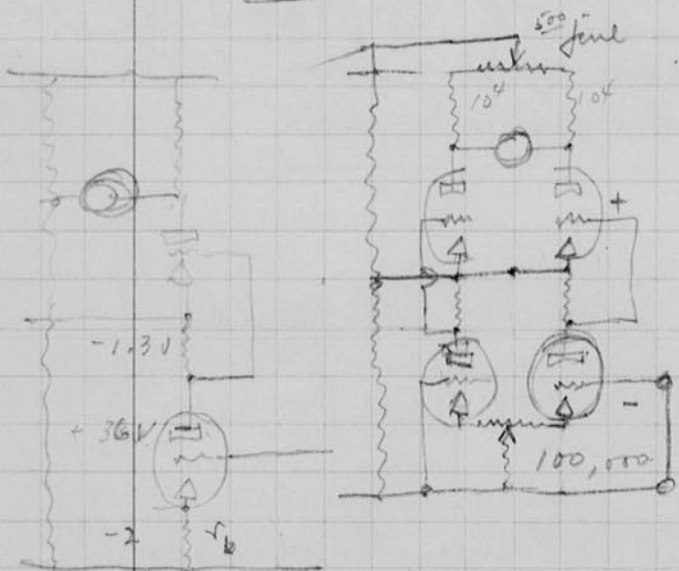 500 fine
10⁴ 10⁴
+
-1.3 V
+ 36 V.
-
100,000
-2 r_b